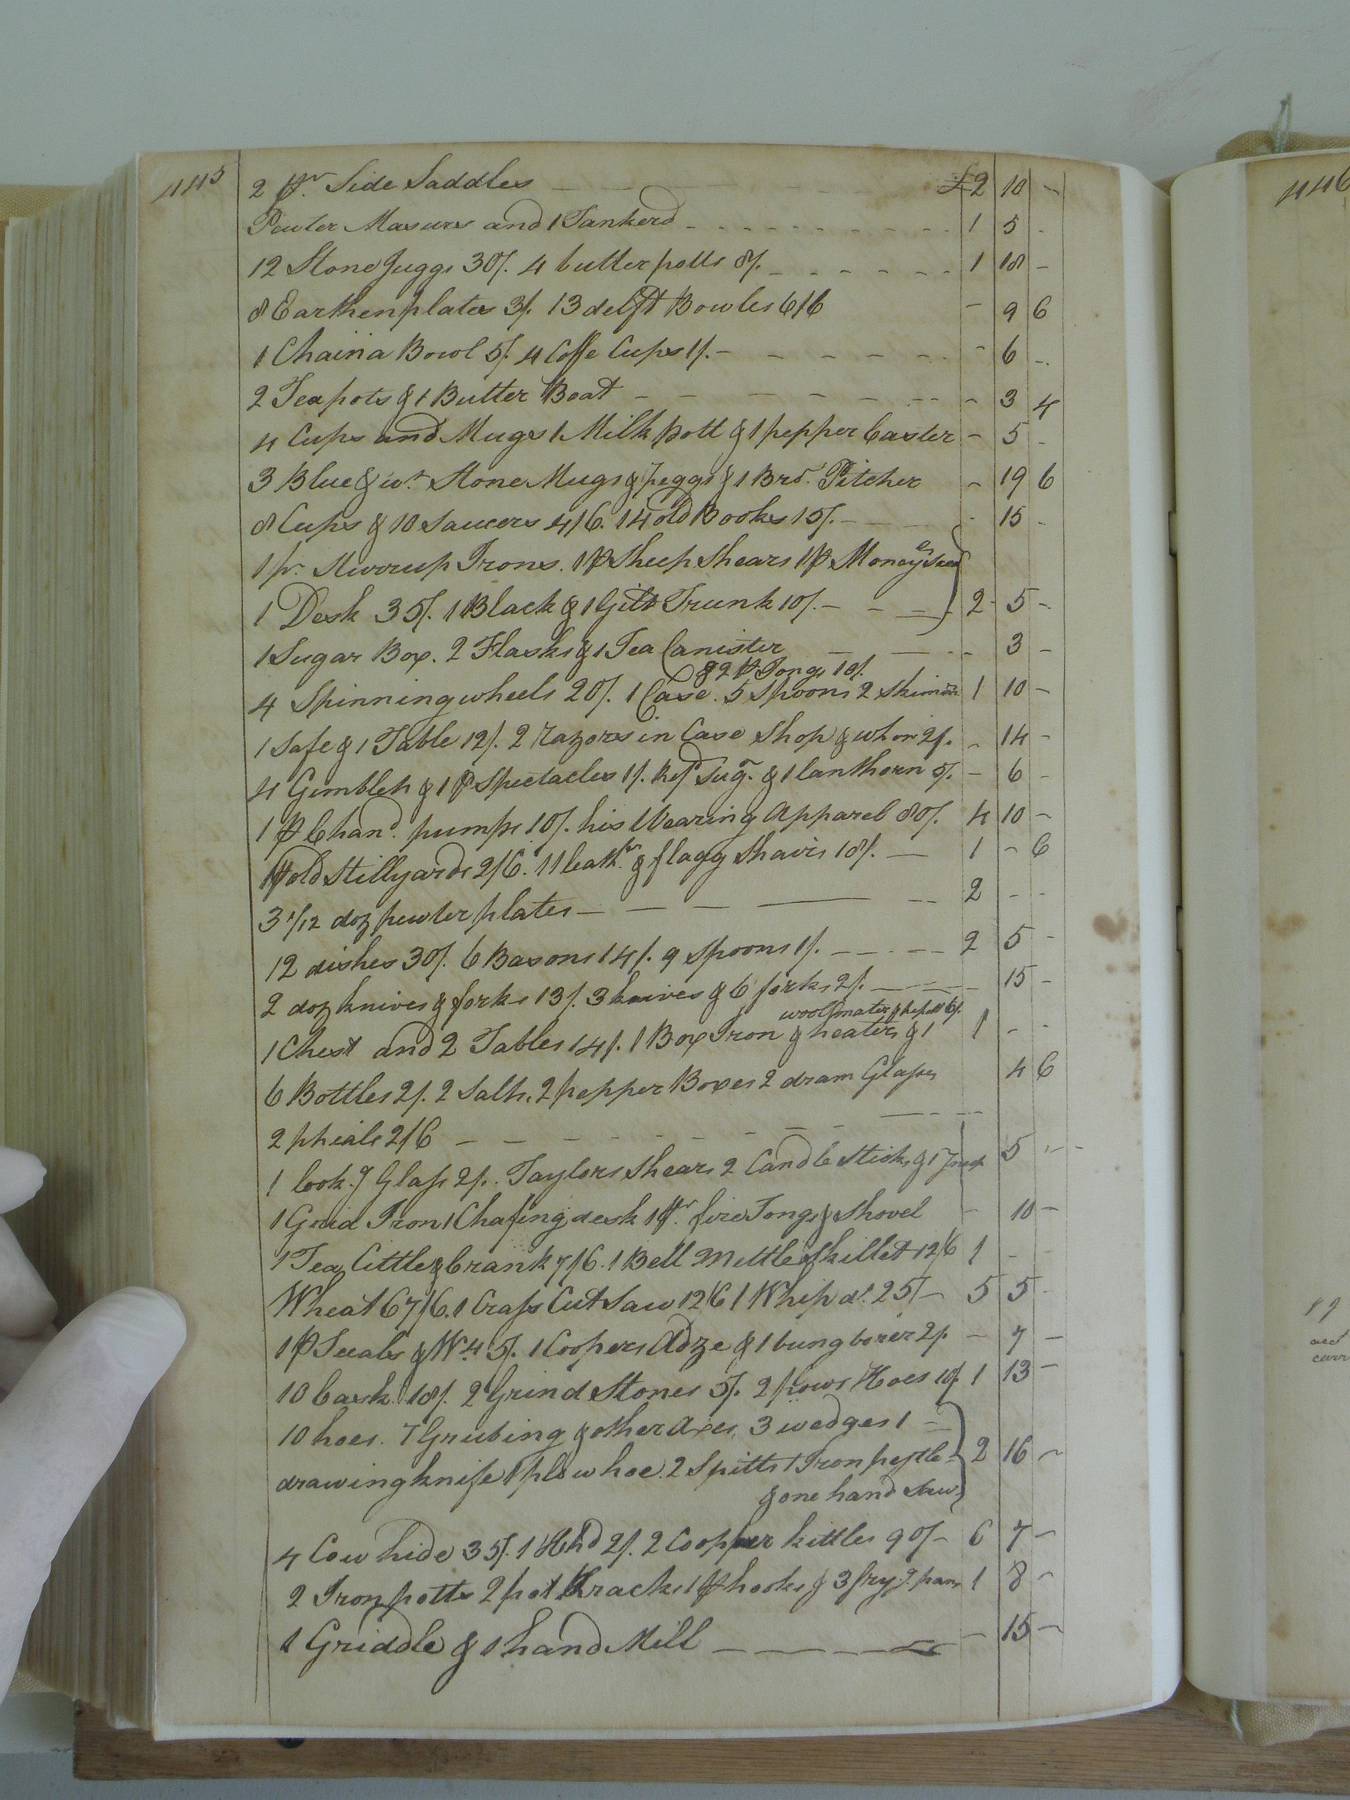 445
2 pr Side Saddles £2 10 -
Pewter Masures and 1 Tankerd 1 5 -
12 Stone Juggs 30/. 4 butter potts 8/. 1 18 -
8 Earthen plates 3/. 13 delft Bowles 6/6 - 9 6
1 Chaina Bowl 5/. 4 Coffe Cups 1/. - 6 -
2 Teapots & 1 Butter Boat - 3 4
4 Cups and Mugs 1 Milk pott & 1 pepper Caster - 5 -
3 Blue & wt Stone Mugs & Jeggs & 1 Brd. Pitcher - 19 6
8 Cups & 10 Saucers 4/6. 14 old Books 15/. - 15 -
1 pr. Sturrup Irons. 1 p Sheep Shears 1 p Money
1 Desk 35/. 1 Black & 1 Gilt Trunk 10/. 2 5 -
1 Sugar Box. 2 Flasks & 1 Tea Canister 3 -
& 2 p Tongs 10/.
4 Spinning wheels 20/. 1 Case. 5 Spoons 2 Skimrs 1 10 -
1 Safe & 1 Table 12/. 2 razors in Case Shop & whon 2/. - 14 -
4 Gimblets & 1 p Spectacles 1/. Refd Sugr. & 1 lanthorn 5/. - 6 -
1 p Chand. pumps 10/. his Wearing Apparel 80/. 4 10 -
1 p old Stillyards 2/6. 11 leathr & flagg Chairs 18/. 1 - 6
3 1/12 doz pewter plates 2 - -
12 dishes 30/. 6 Basons 14/. 9 Spoons 1/. 2 5 -
2 doz knives & forks 13/. 3 knives & 6 forks 2/. 15 -
1 Chest and 2 Tables 14/. 1 Box Iron & heaters & 1 1 - -
6 Bottles 2/. 2 Salts, 2 pepper Boxes 2 dram Glasses 4 6
2 phials 2/6
1 look.g Glass 2/. Taylors Shears 2 Candle Sticks & 1 5 -
1 Grid Iron 1 Chafing desk 1 pr. fire Tongs & Shovel - 10 -
1 Tea Cittle & Crank 7/6. 1 Bell Mettle Skillet 12/6 1 - -
Wheat 67/6. 1 Crass Cut Saw 12/6 1 Whip do. 25/ 5 5 -
1 p Scals & Wts 5/. 1 Coopers Adze & 1 bung borer 2/. - 7 -
10 Cask 18/. 2 Grind Stones 5/. 2 plows Hoes 10/. 1 13 -
10 hoes. 7 Grubing & other Axes, 3 wedges 1
drawing knife 1 plow hoe. 2 Spitts 1 Iron pestle 2 16 -
& one hand Saw
4 Cow hide 35/. 1 Hhd 2/. 2 Cooper kittles 90/ 6 7 -
2 Iron potts 2 pot Kracks 1 p hooks & 3 fry.g pans 1 8 -
1 Griddle & 1 hand Mill - 15 -
446